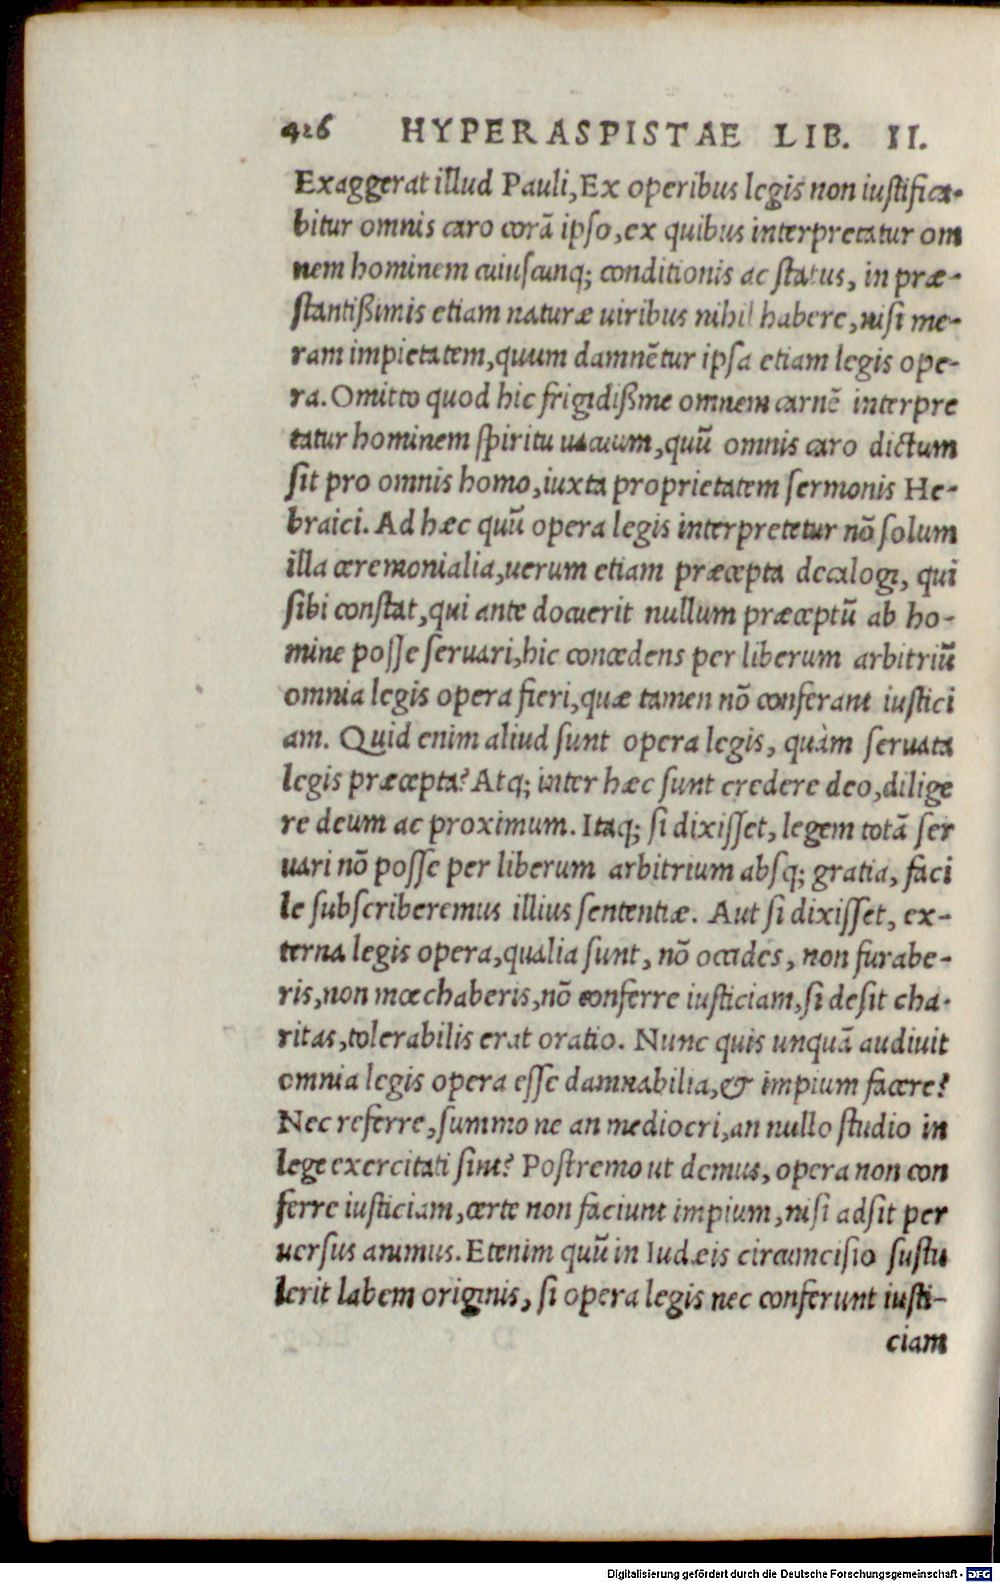 426 HYPERASPISTAE LIB. II.
Exaggerat illud Pauli, Ex operibus legis non iustifica-
bitur omnis caro corā ipso, ex quibus interpretatur om
nem hominem cuiuscunq; conditionis ac status, in præ-
stantißimis etiam naturæ uiribus nihil habere, nisi me-
ram impietatem, quum damnētur ipsa etiam legis ope-
ra. Omitto quod hic frigidißme omnem carnē interpre
tatur hominem spiritu uacuum, quū omnis caro dictum
sit pro omnis homo, iuxta proprietatem sermonis He-
braici. Ad hæc quū opera legis interpretetur nō solum
illa ceremonialia, uerum etiam præcepta decalogi, qui
sibi constat, qui ante docuerit nullum præceptū ab ho-
mine posse seruari, hic concedens per liberum arbitriū
omnia legis opera fieri, quæ tamen nō conferant iustici
am. Quid enim aliud sunt opera legis, quàm seruata
legis præcepta? Atq; inter hæc sunt credere deo, dilige
re deum ac proximum. Itaq; si dixisset, legem totā ser
uari nō posse per liberum arbitrium absq; gratia, faci
le subscriberemus illius sententiæ. Aut si dixisset, ex-
terna legis opera, qualia sunt, nō occides, non furabe-
ris, non mœchaberis, nō conferre iusticiam, si desit cha-
ritas, tolerabilis erat oratio. Nunc quis unquā audiuit
omnia legis opera esse damnabilia, & impium facere?
Nec referre, summo ne an mediocri, an nullo studio in
lege exercitati sint? Postremo ut demus, opera non con
ferre iusticiam, certe non faciunt impium, nisi adsit per
uersus animus. Etenim quū in Iudæis circumcisio sustu
lerit labem originis, si opera legis nec conferunt iusti-
ciam
Digitalisierung gefördert durch die Deutsche Forschungsgemeinschaft - DFG